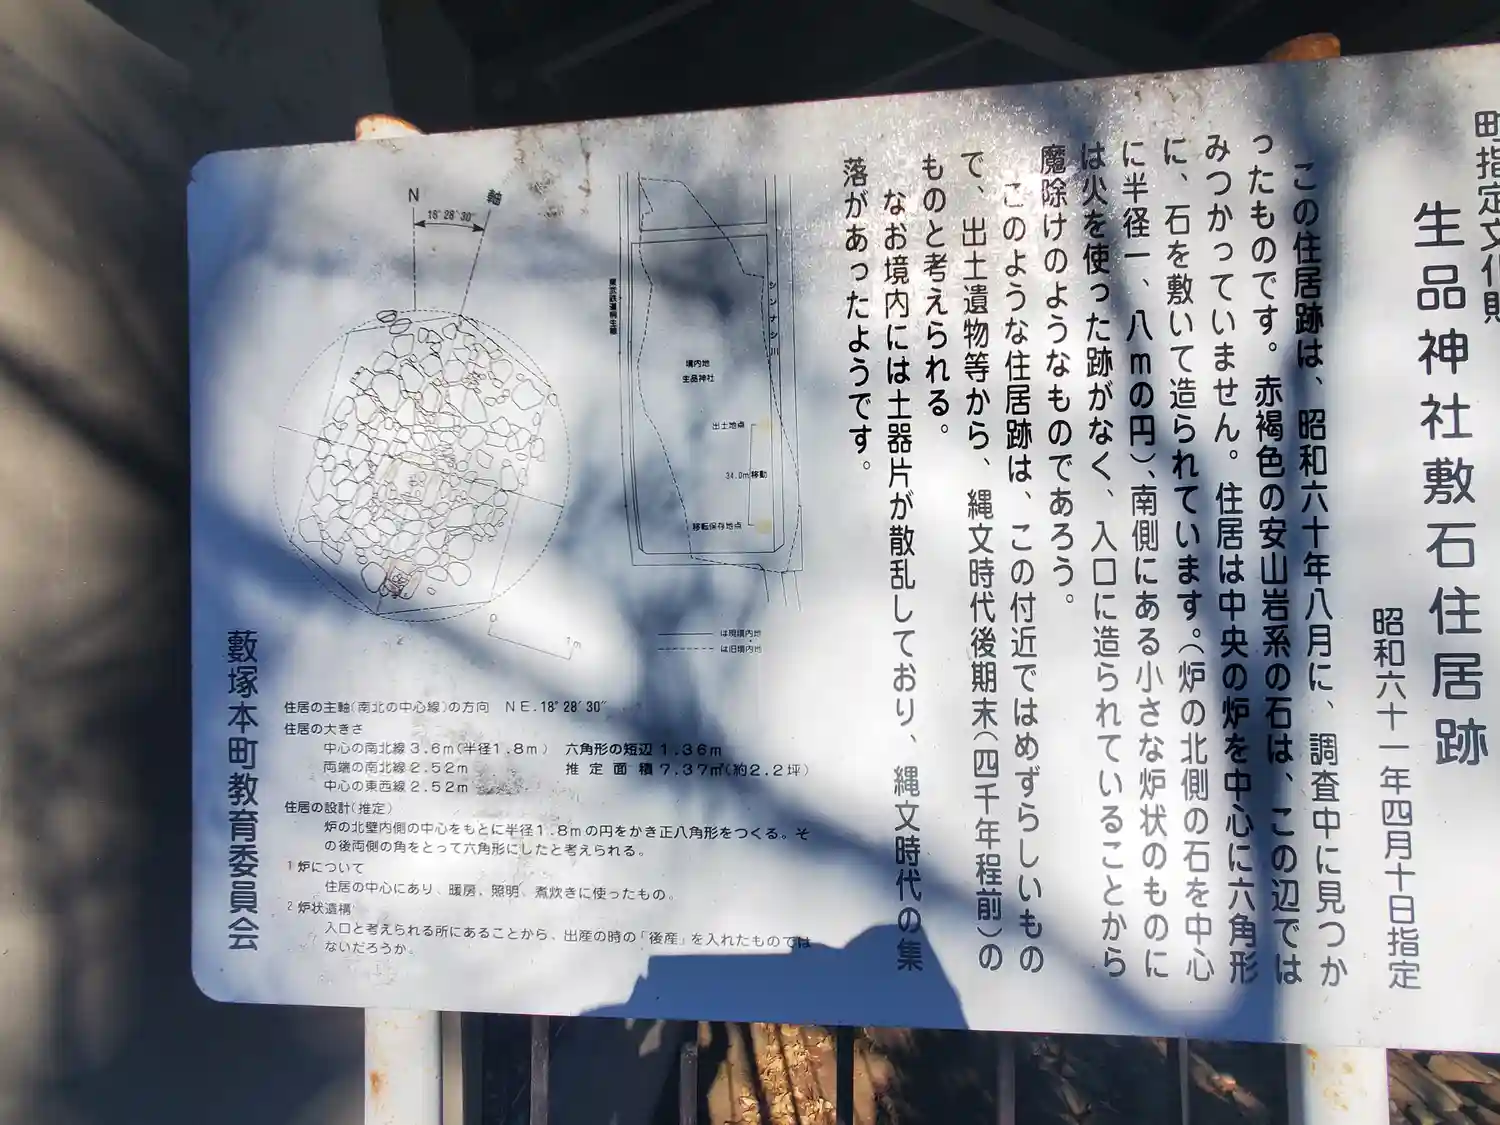 町指定文化財
生品神社敷石住居跡
昭和六十一年四月十日指定
この住居跡は、昭和六十年八月に、調査中に見つか
ったものです。赤褐色の安山岩系の石は、この辺では
みつかっていません。住居は中央の炉を中心に六角形
に、石を敷いて造られています。(炉の北側の石を中心
に半径一、八mの円)、南側にある小さな炉状のものに
は火を使った跡がなく、入口に造られていることから
魔除けのようなものであろう。
このような住居跡は、この付近ではめずらしいもの
で、出土遺物等から、縄文時代後期末(四千年程前)の
ものと考えられる。
なお境内には土器片が散乱しており、縄文時代の集
落があったようです。
N
軸
18°28′30″
東武鉄道桐生線
シンナシ川
境内地
生品神社
出土地点
34.0m移動
移転保存地点
は現境内地
は旧境内地
2
0
1m
住居の主軸(南北の中心線)の方向 NE.18°28′30″
住居の大きさ
中心の南北線3.6m(半径1.8m) 六角形の短辺1.36m
両端の南北線2.52m 推定面積7.37㎡(約2.2坪)
中心の東西線2.52m
住居の設計(推定)
炉の北壁内側の中心をもとに半径1.8mの円をかき正八角形をつくる。そ
の後両側の角をとって六角形にしたと考えられる。
1炉について
住居の中心にあり、暖房、照明、煮炊きに使ったもの。
2炉状遺構
入口と考えられる所にあることから、出産の時の「後産」を入れたものでは
ないだろうか。
藪塚本町教育委員会